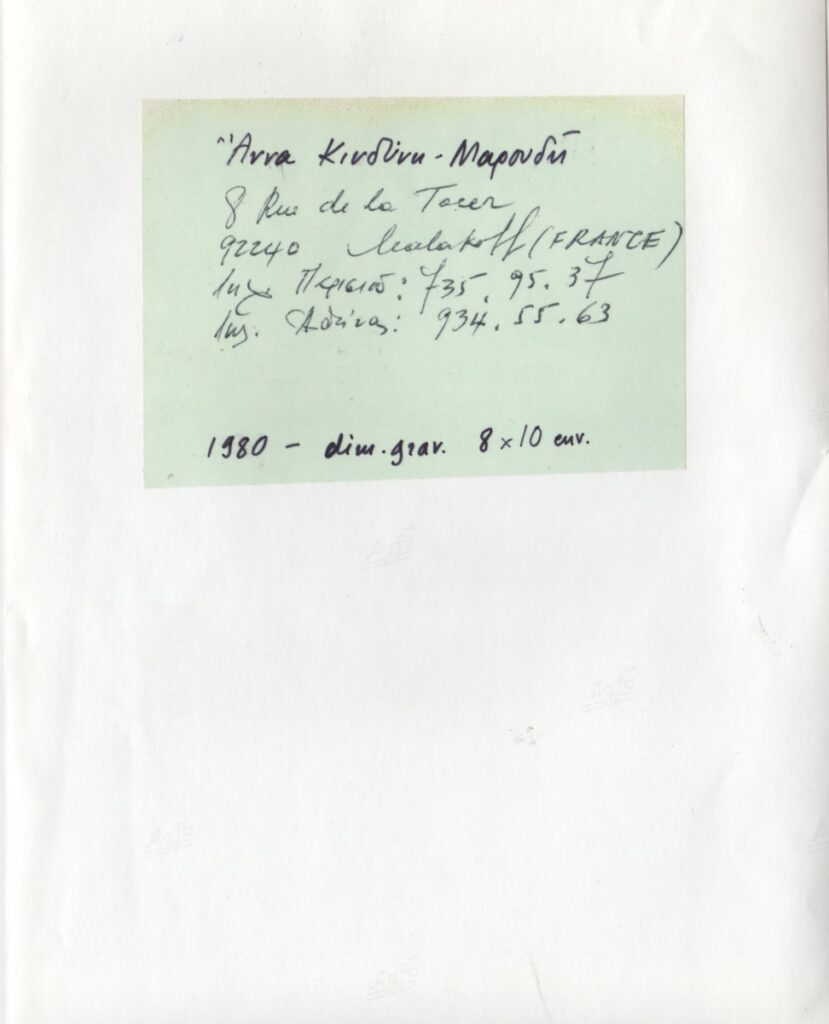 Ἄννα Κινδύνη - Μαρουδή
8 Rue de la Tour
92240 Malakoff (FRANCE)
Τηλ. Παρισιοῦ: 735.95.37
Τηλ. Ἀθήνας: 934.55.63
1980 - dim. grav. 8x10 env.
Agfa
Agfa
Agfa
Agfa